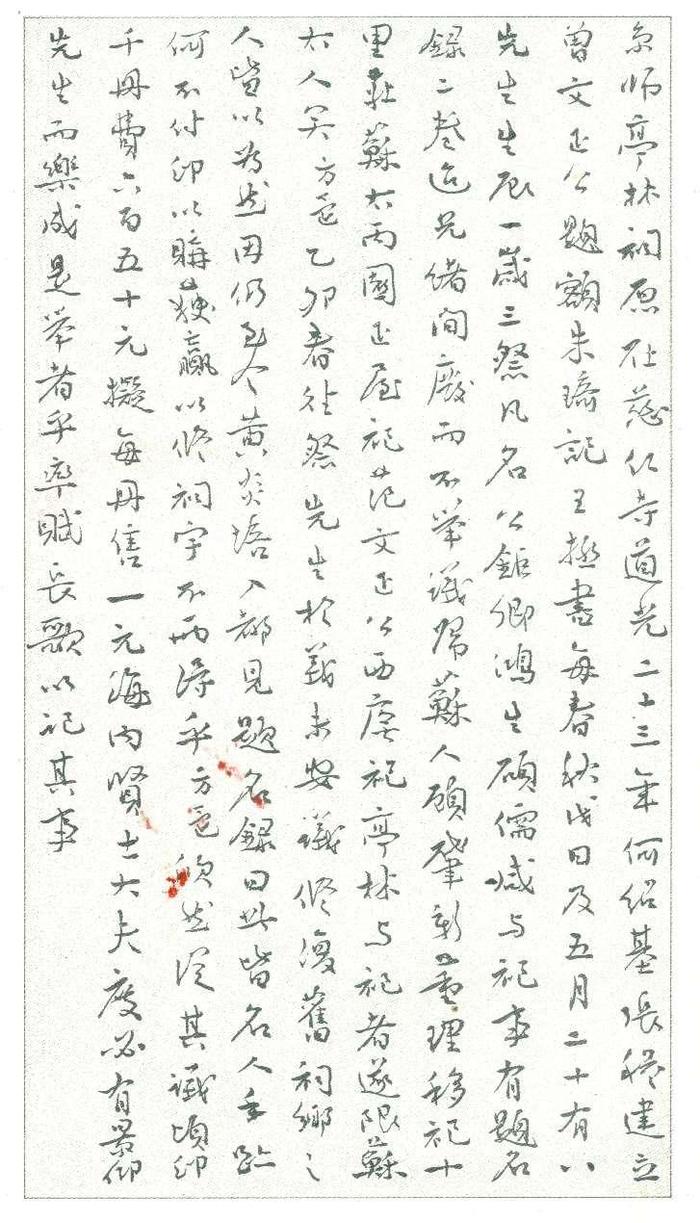 京师亭林祠原在慈仁寺道光二十三年何绍基張穆建立
曾文正公題額朱琦記王拯書每春秋戊日及五月二十有八
先生生辰一歲三祭凡名公鉅卿鴻生碩儒咸与祀事有題名
錄二卷迨光绪間廢而不举議帰蘇人顾肇新重理移祀十
里莊蘇太两園正屋祀范文正公西廡祀亭林与祀者遂限蘇
太人矣方壺乙卯春往祭先生於義未安議修復舊祠鄉之
人皆以為然因仍至今黄炎培入都見題名録曰此皆名人手跡
何不付印以購獲贏以修祠宇不两得乎方壺欣然從其議頃印
千冊費六百五十元擬每冊售一元海内賢士大夫度必有景仰
先生而樂成是举者乎率賦長歌以记其事